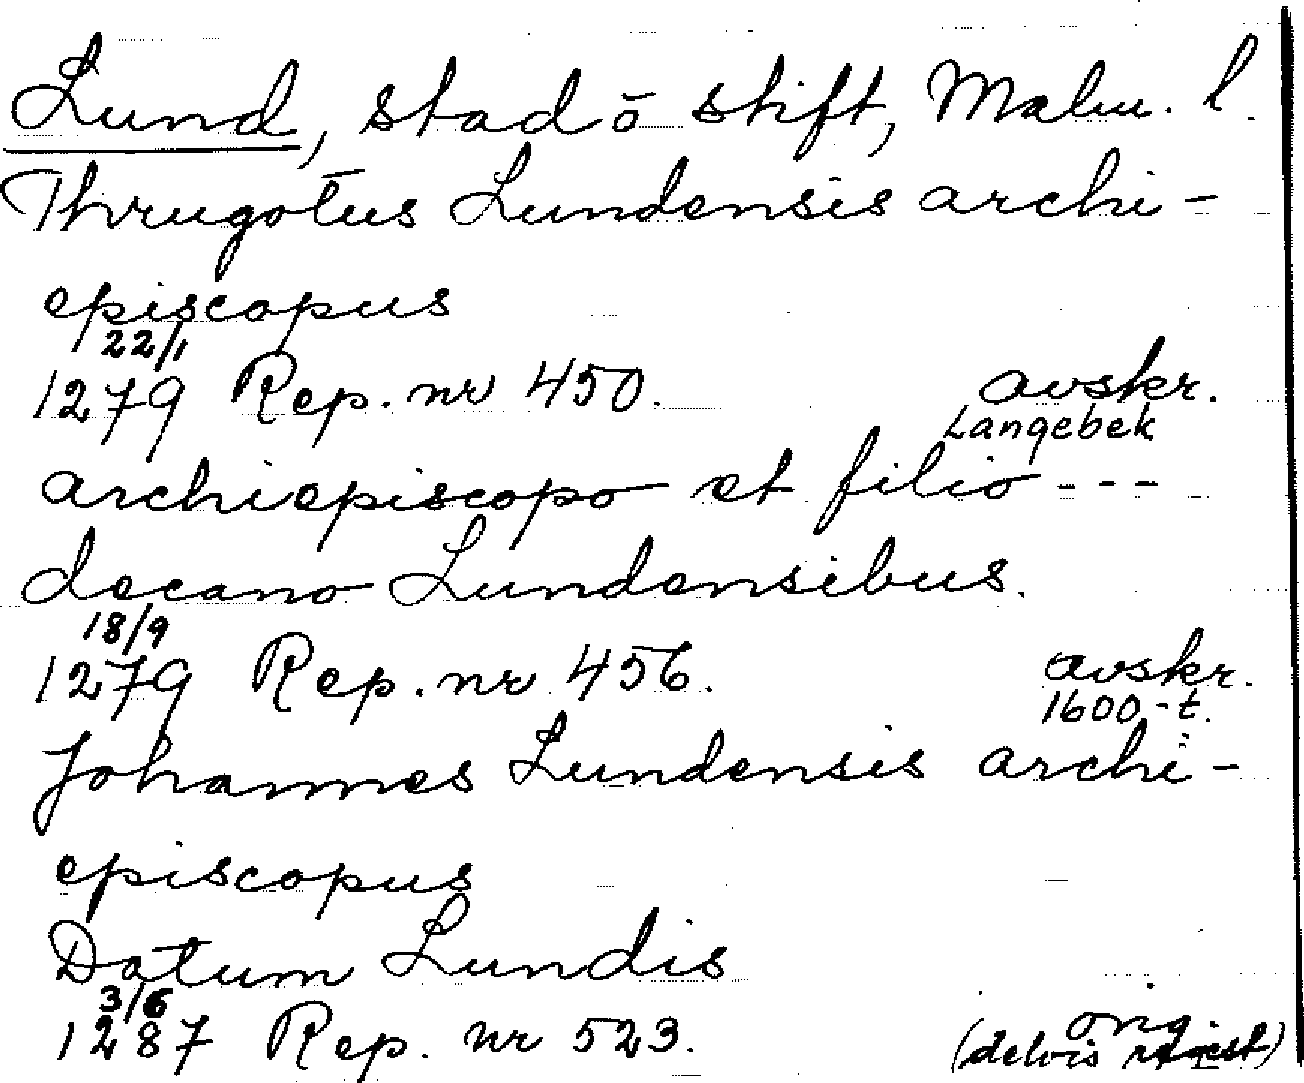 Lund, stad ō stift, Malm. l.
Thrugotus Lundensis archi-
episcopus
22/1
1279 Rep. nr 450. avskr.
Langebek
archiepiscopo et filio ---
decano Lundensibus.
18/9
1279 Rep. nr 456. avskr.
1600-t.
Johannes Lundensis archi-
episcopus
Datum Lundis
3/6
1287 Rep. nr 523. orig.
(delvis regest)